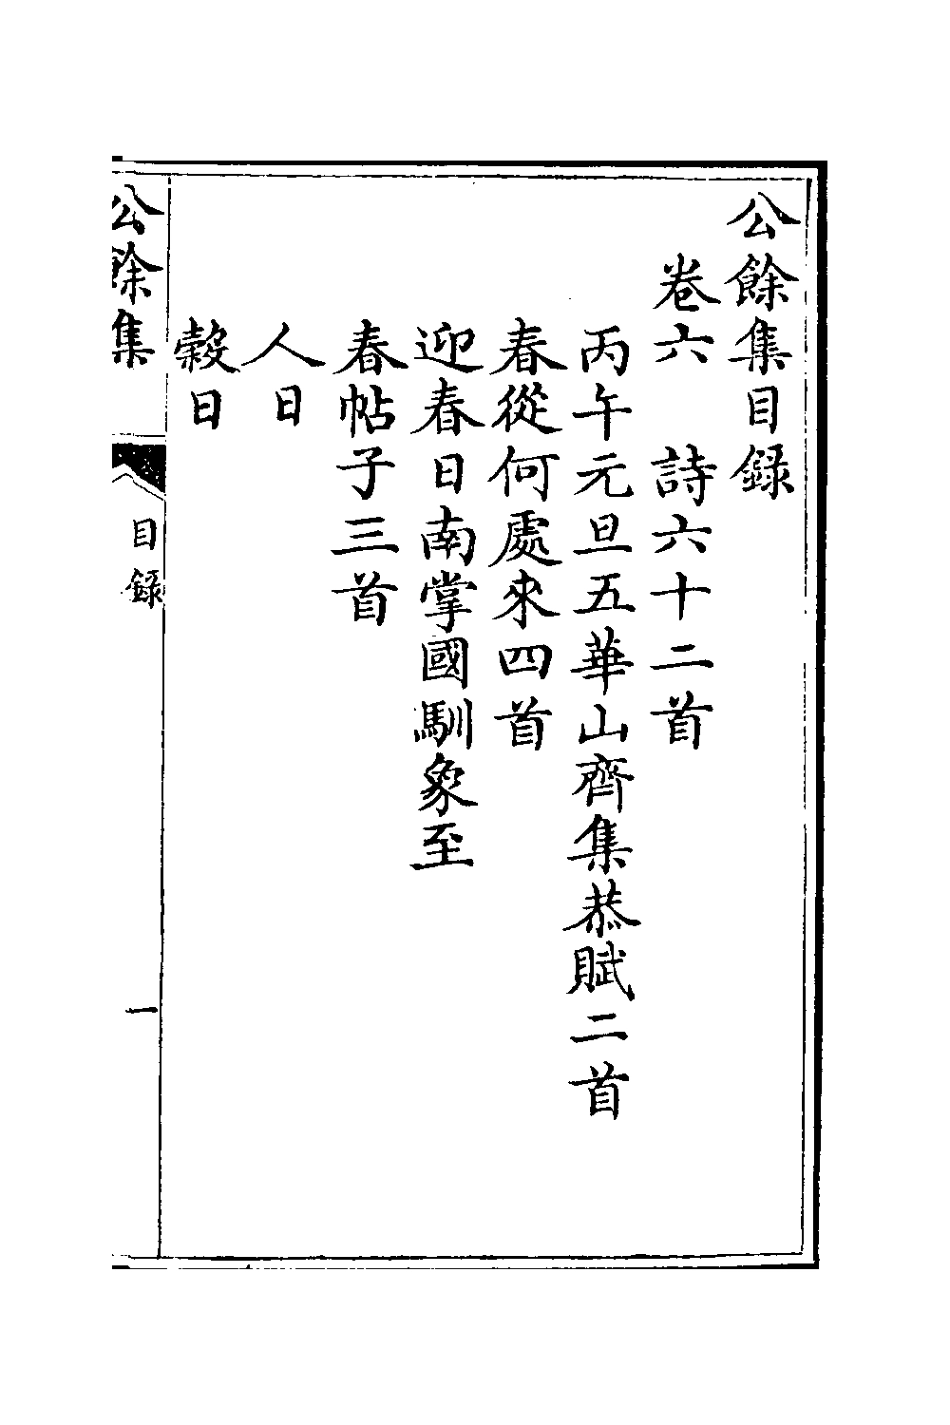 公餘集目録
卷六　詩六十二首
丙午元旦五華山齊集恭賦二首
春從何處來四首
迎春日南掌國馴象至
春帖子三首
人日
穀日
公餘集
目録
一